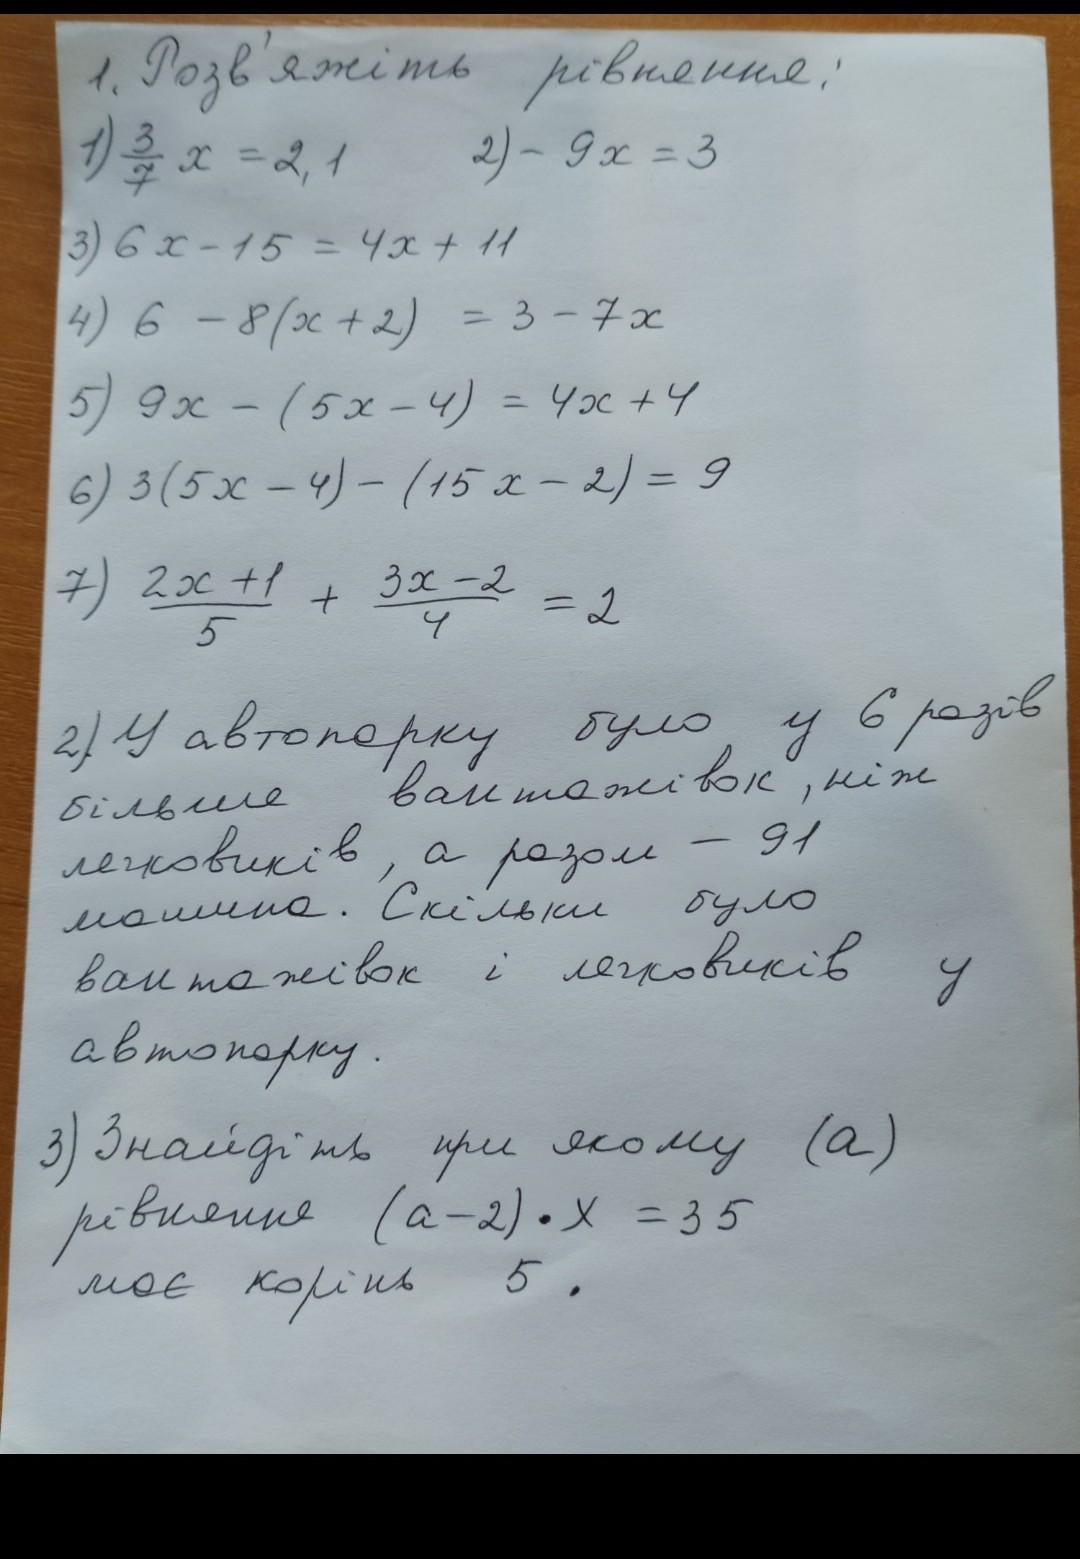 1. Розв'яжіть рівняння:
1) 3/7 x = 2,1 2) - 9x = 3
3) 6x - 15 = 4x + 11
4) 6 - 8(x + 2) = 3 - 7x
5) 9x - (5x - 4) = 4x + 4
6) 3(5x - 4) - (15x - 2) = 9
7) (2x + 1)/5 + (3x - 2)/4 = 2
2) У автопарку було у 6 разів
більше вантажівок, ніж
легковиків, а разом - 91
машина. Скільки було
вантажівок і легковиків у
автопарку.
3) Знайдіть при якому (а)
рівняння (a-2) • X = 35
має корінь 5.